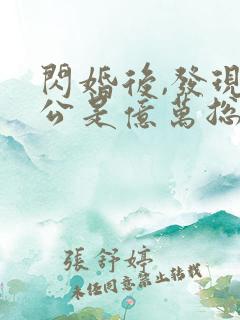 閃婚後,發現
公是億萬總
張舒婷
未經同意禁止轉載